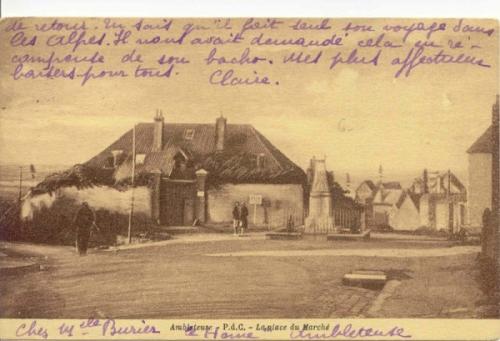 de retour. Tu sais qu'il fait seul son voyage dans
les Alpes. Il nous avait demandé cela en ré-
compense de son bacho. Mes plus affectueux
baisers pour tous.
Claire.
Ambleteuse - P.d.C. - La place du Marché
Chez Melle Burier le Home Ambleteuse